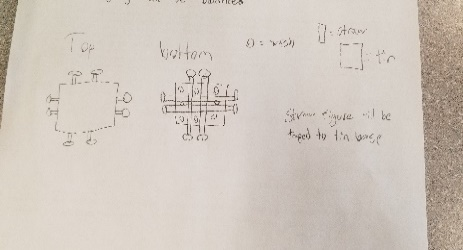 be balanced
Top
bottom
= wash
= straw
= tin
Straw figure will be
taped to tin base